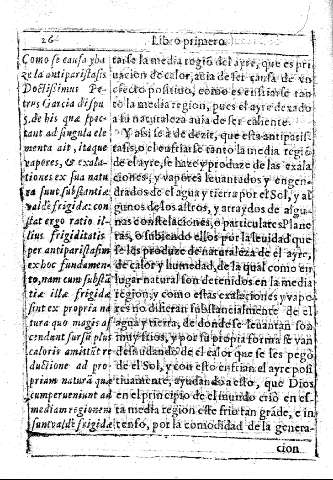 26 Libro primero.
Como se causa y ha
ze la antiparistasis
Doctissimus Pe
trus Garcia dispu
s, de his quæ spec-
tant ad singula ele
menta ait, itaque
vapores, & exala
tiones ex sua natu
ra sunt substantiæ
valde frigidæ: con
stat ergo ratio il-
lius frigiditatis
per antiparistasim
ex hoc fundamen-
to, nam cum substā
tiæ illæ frigidæ
sint ex propria na
tura quo magis as
cendunt sursū plus
caloris amittūt re
ductione ad pro-
priam naturā quæ
cum perueniunt ad
mediam regionem
sunt valdè frigidæ
tarse la media regiō del ayre, que es pri
uacion de calor, auia de ser causa de vn
efecto positiuo, como es enfriarse tan-
to la media region, pues el ayre dexado
a su naturaleza auia de ser caliente.
Y assi se a de dezir, que esta antiparis-
tasis, o el enfriarse tanto la media regiō
de el ayre, se haze y produze de las exala
ciones, y vapores leuantados y engen-
drados de el agua y tierra por el Sol, y al
gunos de los astros, y atraydos de algu-
nas constelaciones, o particulares Plane
tas, o subiendo ellos por la leuidad que
se les produze de naturaleza de el ayre,
de calor y humedad, de la qual como en
lugar natural son detenidos en la media
region; y como estas exalaciones y vapo
res no difieran substancialmente de el
agua y tierra, de donde se leuantan son
muy frios, y por su propia forma se van
desnudando de el calor que se les pegò
de el Sol, y con esto enfrian el ayre posi
tiuamente, ayudando a esto, que Dios
en el principio de el mundo criò en es-
ta media region este frio tan grāde, e in
tenso, por la comodidad de la genera-
cion